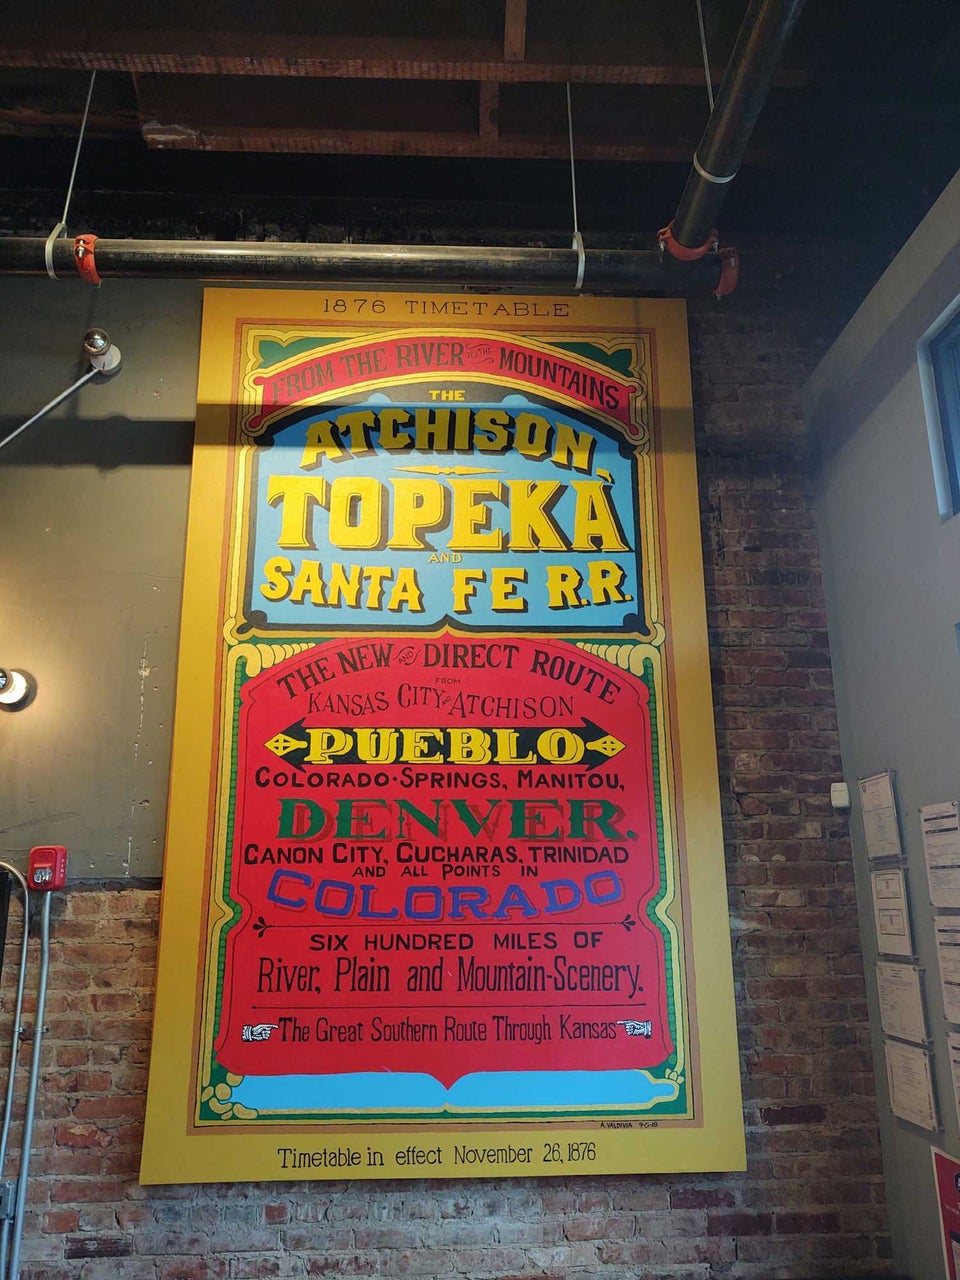 1876 TIMETABLE
FROM THE RIVER TO THE MOUNTAINS
THE
ATCHISON,
TOPEKA
AND
SANTA FE R.R.
THE NEW AND DIRECT ROUTE
FROM
KANSAS CITY & ATCHISON
PUEBLO
COLORADO·SPRINGS, MANITOU,
DENVER.
CANON CITY, CUCHARAS, TRINIDAD
AND ALL POINTS IN
COLORADO
SIX HUNDRED MILES OF
River, Plain and Mountain-Scenery.
The Great Southern Route Through Kansas
A. VALDIVIA 9-5-18
Timetable in effect November 26, 1876